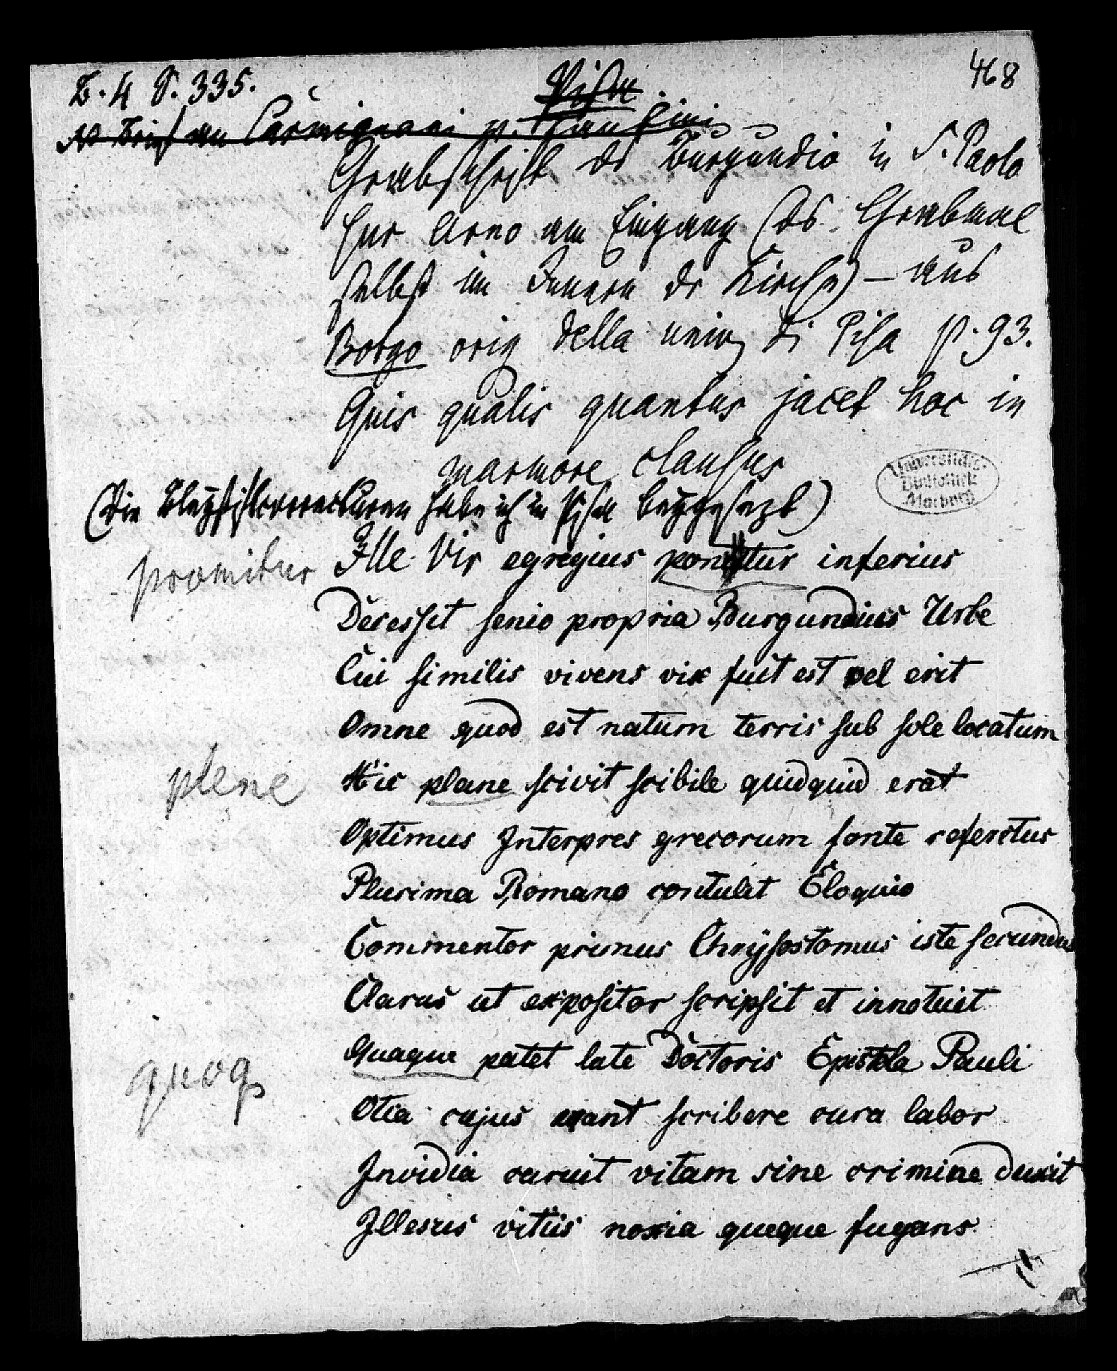 B. 4 S. 335.
Pisa.
468
NB Brief an Carmignani p.
Grabschrift ds Burgundio in S. Paolo
sur Arno am Eingang (ds. Grabmal
selbst im Innern dr Kirche) – aus
Borgo orig della univ di Pisa p. 93.
Quis qualis quantus jacet hoc in
marmore clausus
Universitäts-
Bibliothek
Marburg
(Die Bleystiftcorrecturen habe ich in Pisa beygesezt)
promitur
Ille Vir egregius ponitur inferius
Decessit senio propria Burgundius Urbe
Cui similis vivens vix fuit est vel erit
Omne quod est natum terris sub sole locatum
plene
Hic plane scivit scibile quidquid erat
Optimus Interpres grecorum fonte refertus
Plurima Romano contulit Eloquio
Commentor primus Chrysostomus iste secundus
Clarus ut expositor scripsit et innotuit
quoq
Quaque patet late Doctoris Epistola Pauli
Otia cujus erant scribere cura labor
Invidia caruit vitam sine crimine duxit
Illesus vitiis noxia queque fugans